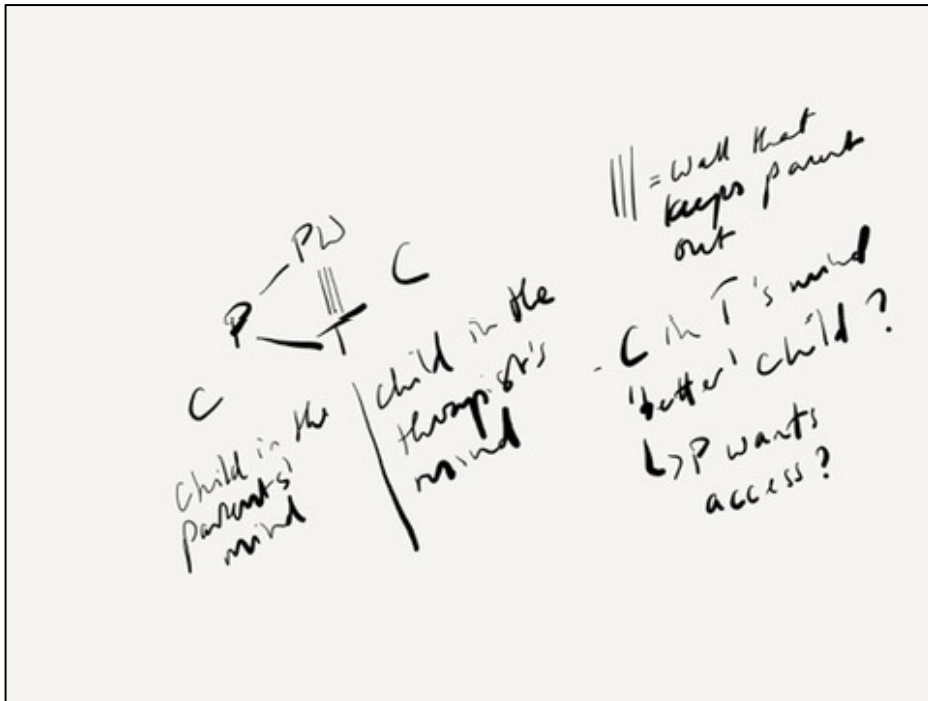 PW
P
T
C
C
child in the
parents'
mind
child in the
therapist's
mind
= wall that
keeps parent
out
- C in T's mind
'better' child?
↳ P wants
access?